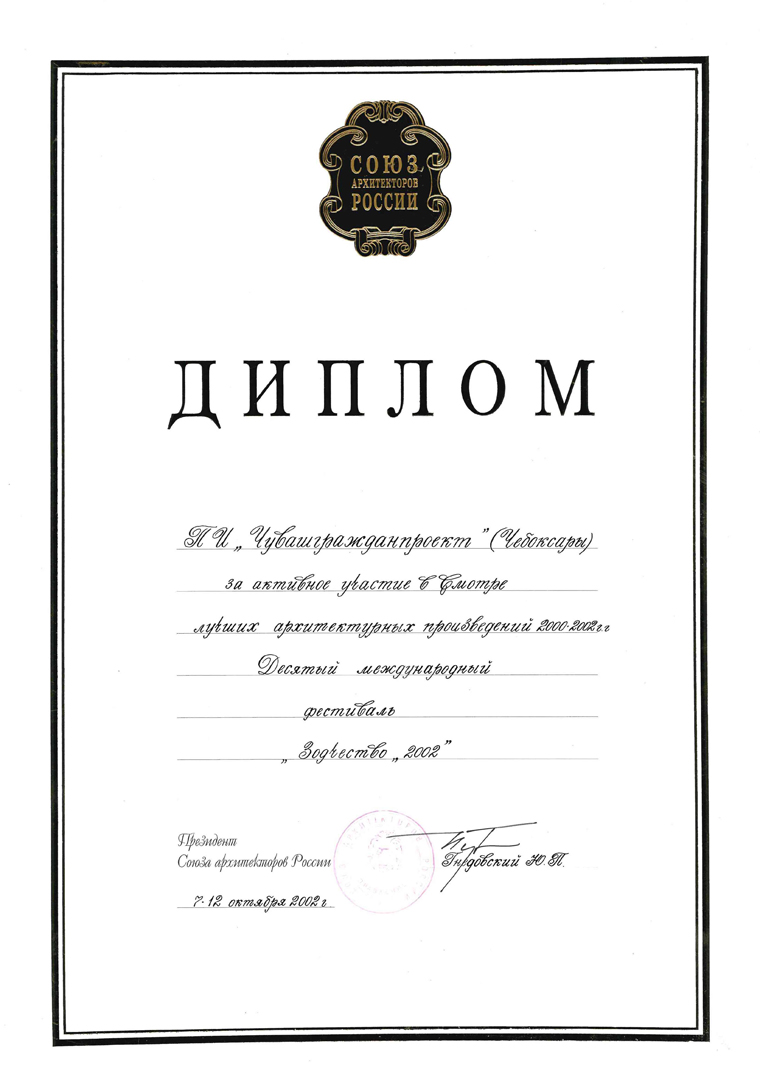 СОЮЗ
АРХИТЕКТОРОВ
РОССИИ
ДИПЛОМ
ПИ „Чувашгражданпроект" (Чебоксары)
за активное участие в Смотре
лучших архитектурных произведений 2000-2002г.г
Десятый международный
фестиваль
„Зодчество „2002"
Президент
Союза архитекторов России
Гнедовский Ю.П.
7-12 октября 2002 г.